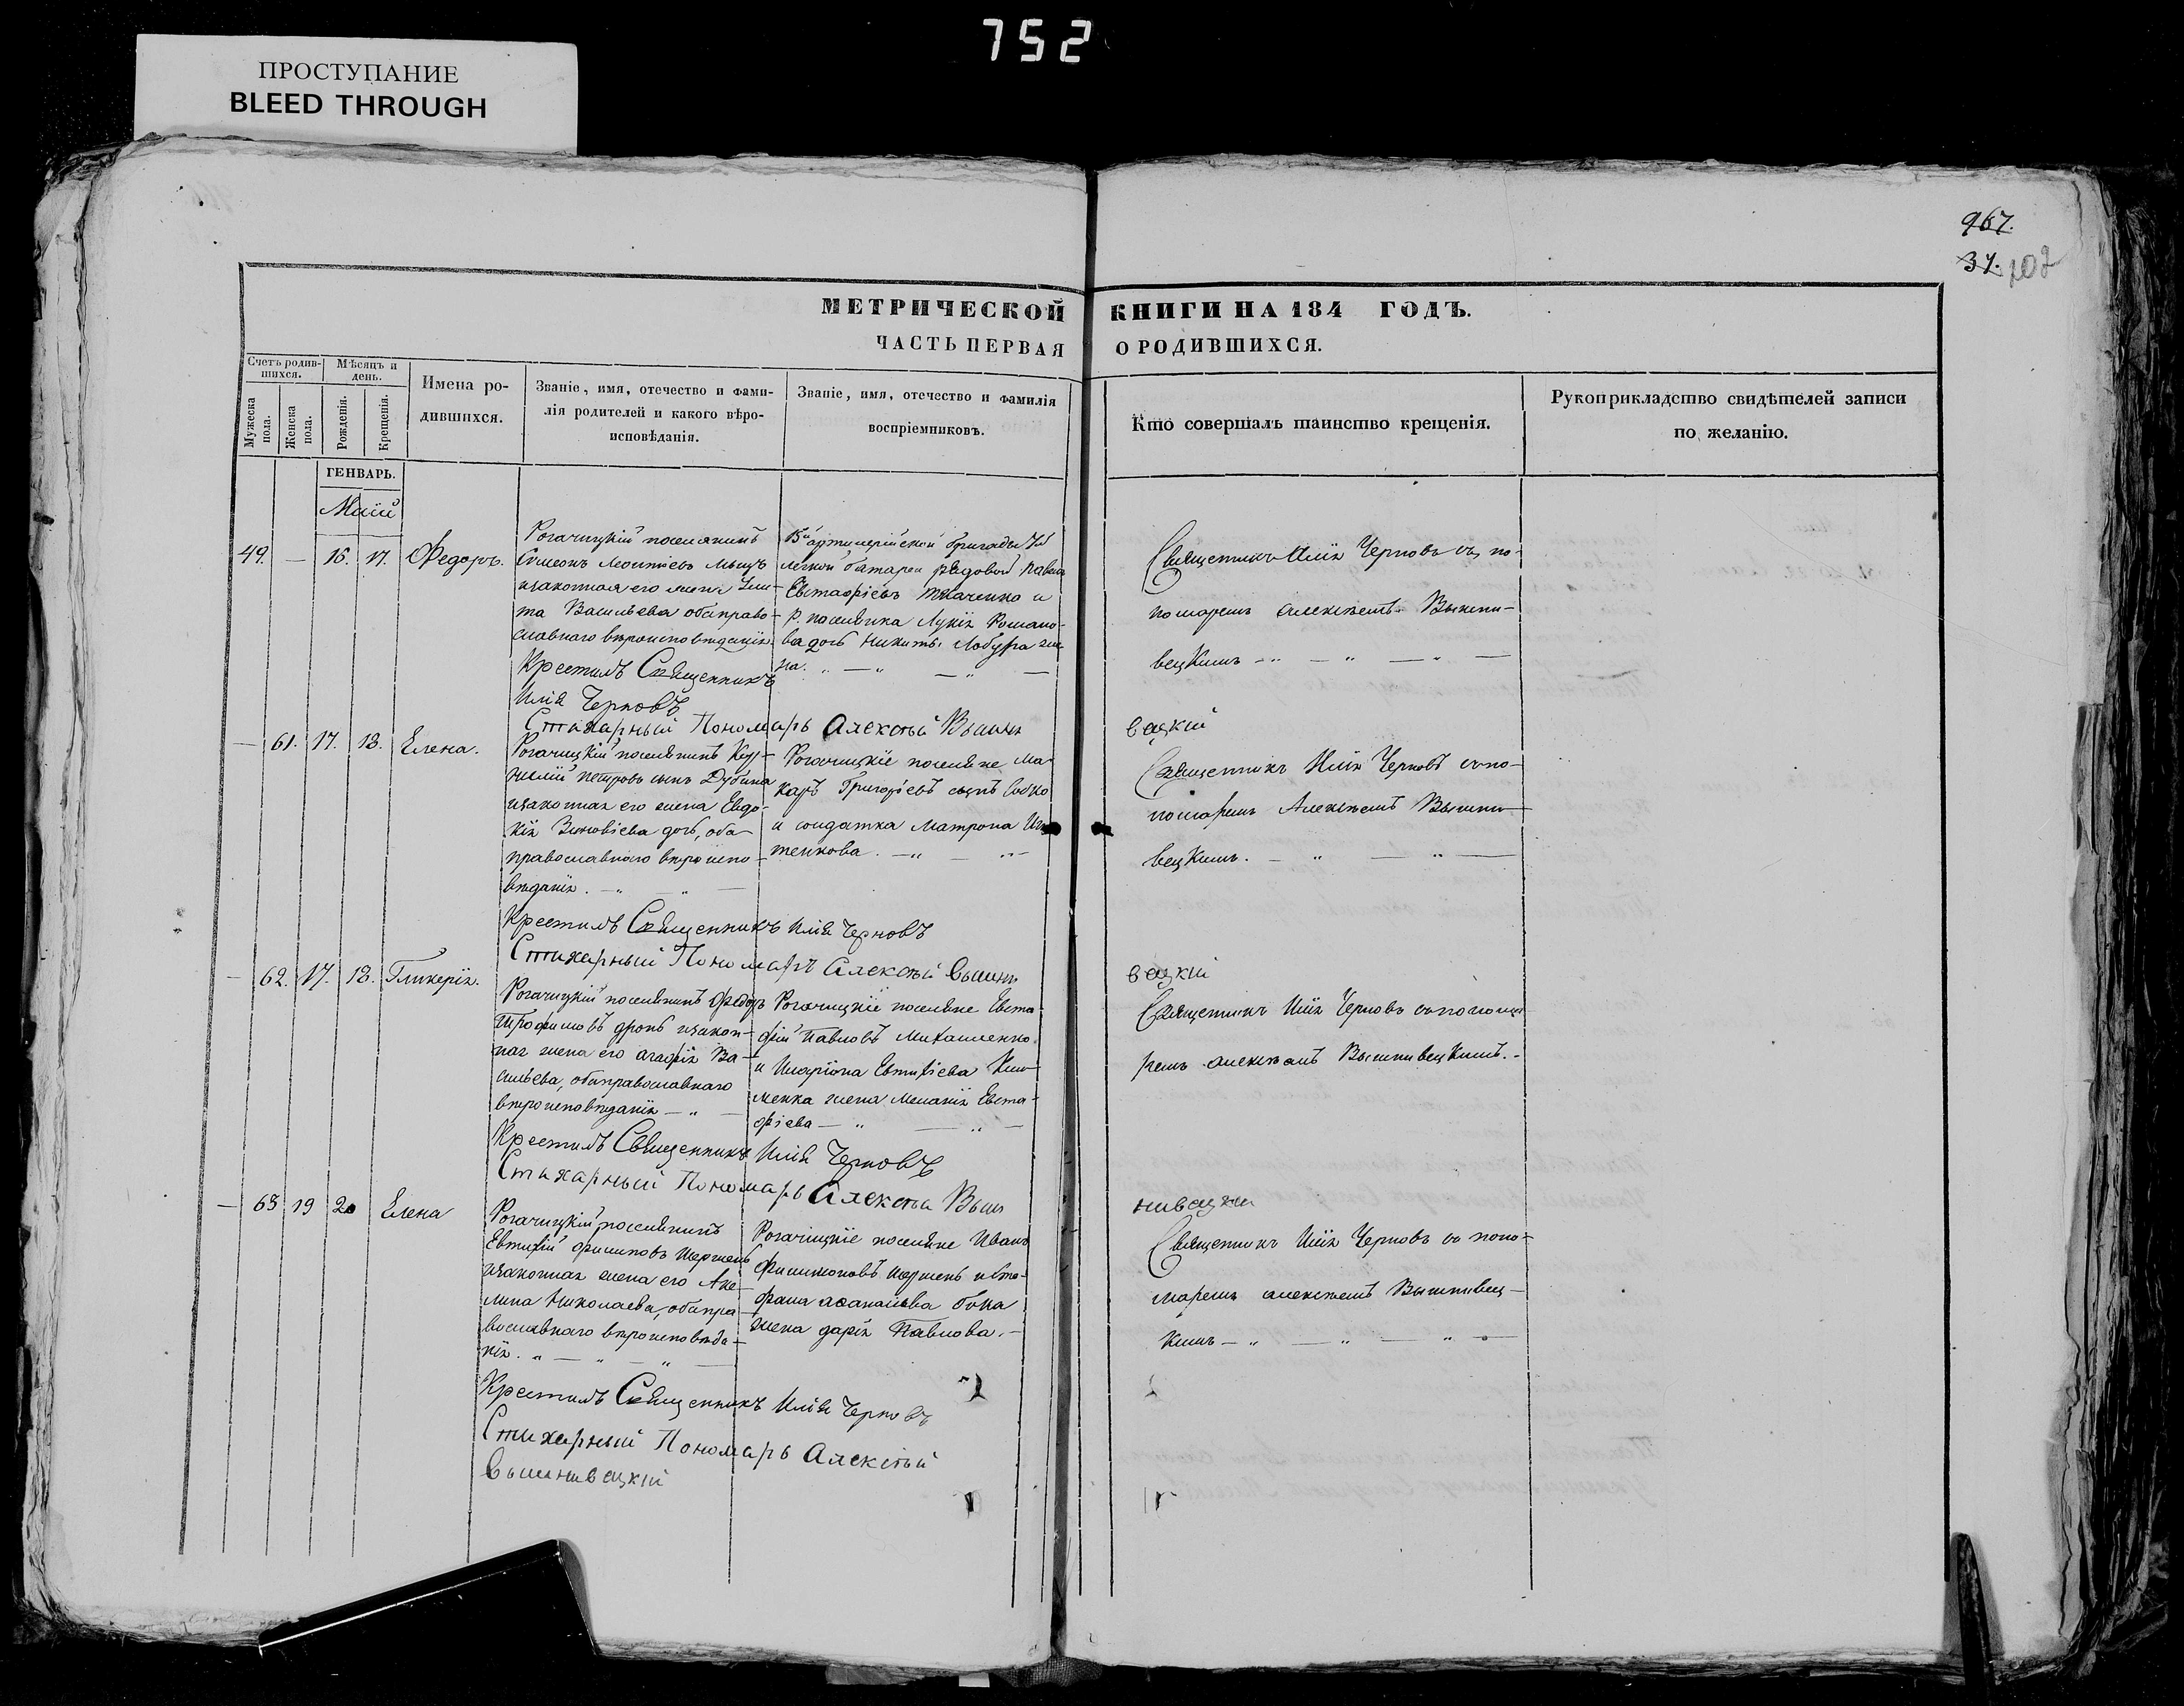 752
ПРОСТУПАНИЕ
BLEED THROUGH
967.
37. 102
МЕТРИЧЕСКОЙ КНИГИ НА 184 ГОДЪ.
ЧАСТЬ ПЕРВАЯ О РОДИВШИХСЯ.
Счетъ родив-
шихся.
Мѣсяцъ и
день.
Мужеска
пола.
Женска
пола.
Рожденія.
Крещенія.
Имена ро-
дившихся.
Званіе, имя, отечество и фами-
лія родителей и какого вѣро-
исповѣданія.
Званіе, имя, отечество и фамилія
воспріемниковъ.
Кто совершалъ таинство крещенія.
Рукоприкладство свидѣтелей записи
по желанію.
ГЕНВАРЬ.
Маій
49. — 16. 17. Федоръ.
Рогачицкій поселянинъ
Симеонъ Леонтіевъ
изаконная его жена
Васильева обаправо-
славнаго вѣроисповѣданія
артилерійской бригады
легкой батареи рядовой Павелъ
Евстафіевъ Ткаченко и
р. поселянка Лукія Романо-
ва дочь Никиты Лобура же-
на. „ — „ — „ —
Священникъ Илія Черновъ съ по-
номаремъ Алексѣемъ Вышни-
вецкимъ — „ — „ — „ —
Крестилъ Священникъ
Илія Черновъ
Стихарный Пономарь Алексѣй Вышни
вецкій
— 61. 17. 18. Елена.
Рогачицкій поселянинъ Кор-
нилій Петровъ сынъ Дубина
изаконная его жена Евдо-
кія Зиновіева дочь, оба
православнаго вѣроиспо-
вѣданія. — „ — „ —
Рогачицкіе поселяне Ма-
каръ Григоріевъ сынъ Собко
и солдатка Матрона
тенкова. — „ „ —
Священникъ Илія Черновъ сѣпо-
номаремъ Алексѣемъ Вышни
вецкимъ. — „ — „ —
Крестилъ Священникъ Илія Черновъ
Стихарный Пономарь Алексѣй Вышни
вецкій
— 62. 17. 18. Гликерія.
Рогачицкій поселянинъ Федоръ
Трофимовъ дронь изакон-
ная жена его Агафія Ва-
сильева, обаправославнаго
вѣроисповѣданія — „ —
Рогачицкіе поселяне Евста-
фій Павловъ Михайленко
и Иларіона Евтихіева Кли-
менка жена Меланія Евста-
фіева — „ — „ —
Священникъ Илія Черновъ съпонома
ремъ Алексѣемъ Вышнивецкимъ. -
Крестилъ Священникъ Илія Черновъ
Стихарный Пономарь Алексѣй Выш
нивецкій
— 63 19 20 Елена
Рогачицкій поселянинъ
Евтихій Филиповъ Шершень
изаконная жена его Аку-
лина Николаева, обапра-
вославнаго вѣроисповѣда-
нія. „ — „ — „ —
Рогачицкіе поселяне Иванъ
Филимоновъ Шершень
фана Аѳанасіева бока
жена Дарія Павлова. —
Священникъ Илія Черновъ со поно-
маремъ Алексѣемъ Вышнивец-
кимъ — „ — „ — „ —
Крестилъ Священникъ Илія Черновъ
Стихарный Пономарь Алексѣй
Вышнивецкій